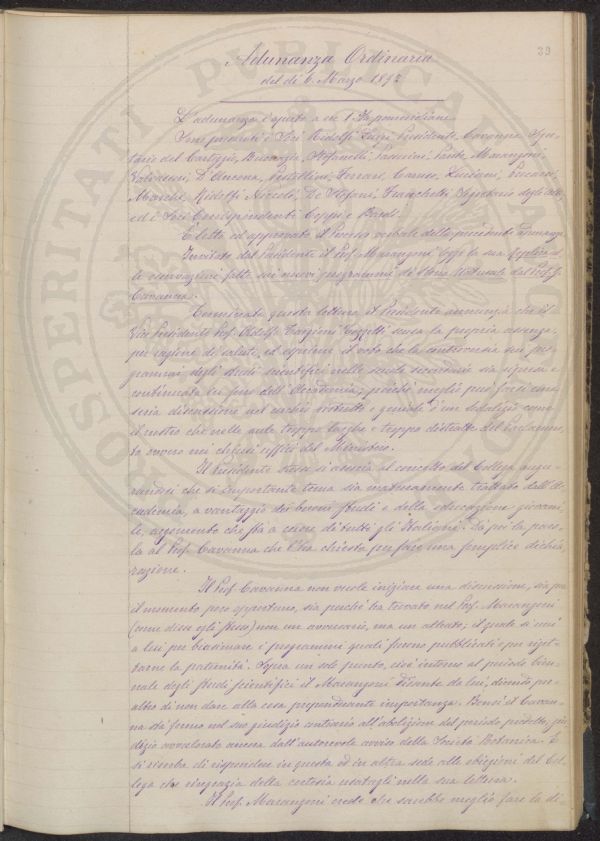 39
Adunanza Ordinaria
del dì 6 Marzo 1892
L'adunanza è aperta a ore 1 ½ pomeridiane.
Sono presenti i Soci Ridolfi Luigi, Presidente, Cavanna, Segre-
tario del Carteggio, Stefanelli, Passerini, Marangoni,
D'Ancona, Pestellini, Ferrari, Caruso, Luciani,
Ridolfi Niccolò, De Stefani, Franchetti, Segretario degli Atti,
ed i Soci Corrispondenti e Bardi.
È letto ed approvato il Processo verbale della precedente adunanza.
Invitato dal Presidente il Prof. Marangoni legge la sua
le osservazioni fatte sui nuovi programmi di Storia Naturale dal Prof.
Cavanna.
Terminata questa lettura il Presidente annunzia che il
Vice Presidente Prof. Adolfo Targioni Tozzetti scusa la propria assenza,
per ragione di salute, ed esprime il voto che la controversia sui pro-
grammi degli studi scientifici nelle scuole secondarie sia ripresa e
continuata in seno dell'Accademia, poichè meglio può farsi una
seria discussione nel cerchio ristretto e geniale d'un sodalizio come
il nostro che nelle aule troppo larghe e troppo distratte del Parlamen-
to ovvero nei chiusi uffici del Ministero.
Il Presidente stesso si associa al concetto del Collega augu-
randosi che sì importante tema sia maturamente trattato dall'Ac-
cademia, a vantaggio dei buoni studi e della educazione giovani-
le, argomento che sta a cuore di tutti gli Italiani. Dà poi la paro-
la al Prof. Cavanna che l'ha chiesta per fare una semplice dichia-
razione.
Il Prof. Cavanna non vuole iniziare una discussione, sia per
il momento poco opportuno, sia perchè ha trovato nel Prof. Marangoni
(come disse egli stesso) non un avversario, ma un alleato; il quale si unì
a lui per biasimare i programmi quali furono pubblicati e per riget-
tarne la paternità. Sopra un solo punto, cioè intorno al periodo bien-
nale degli studi scientifici il Marangoni dissente da lui, dicendo pe-
raltro di non dare alla cosa preponderante importanza. Bensì il Cavan-
na sta fermo nel suo giudizio contrario all'abolizione del periodo predetto, giu-
dizio avvalorato ancora dall'autorevole avviso della Società Botanica. E
si riserba di rispondere in questa od in altra sede alle obiezioni del Col-
lega che ringrazia della cortesia usatagli nella sua lettura.
Il Prof. Marangoni crede che sarebbe meglio fare la di-